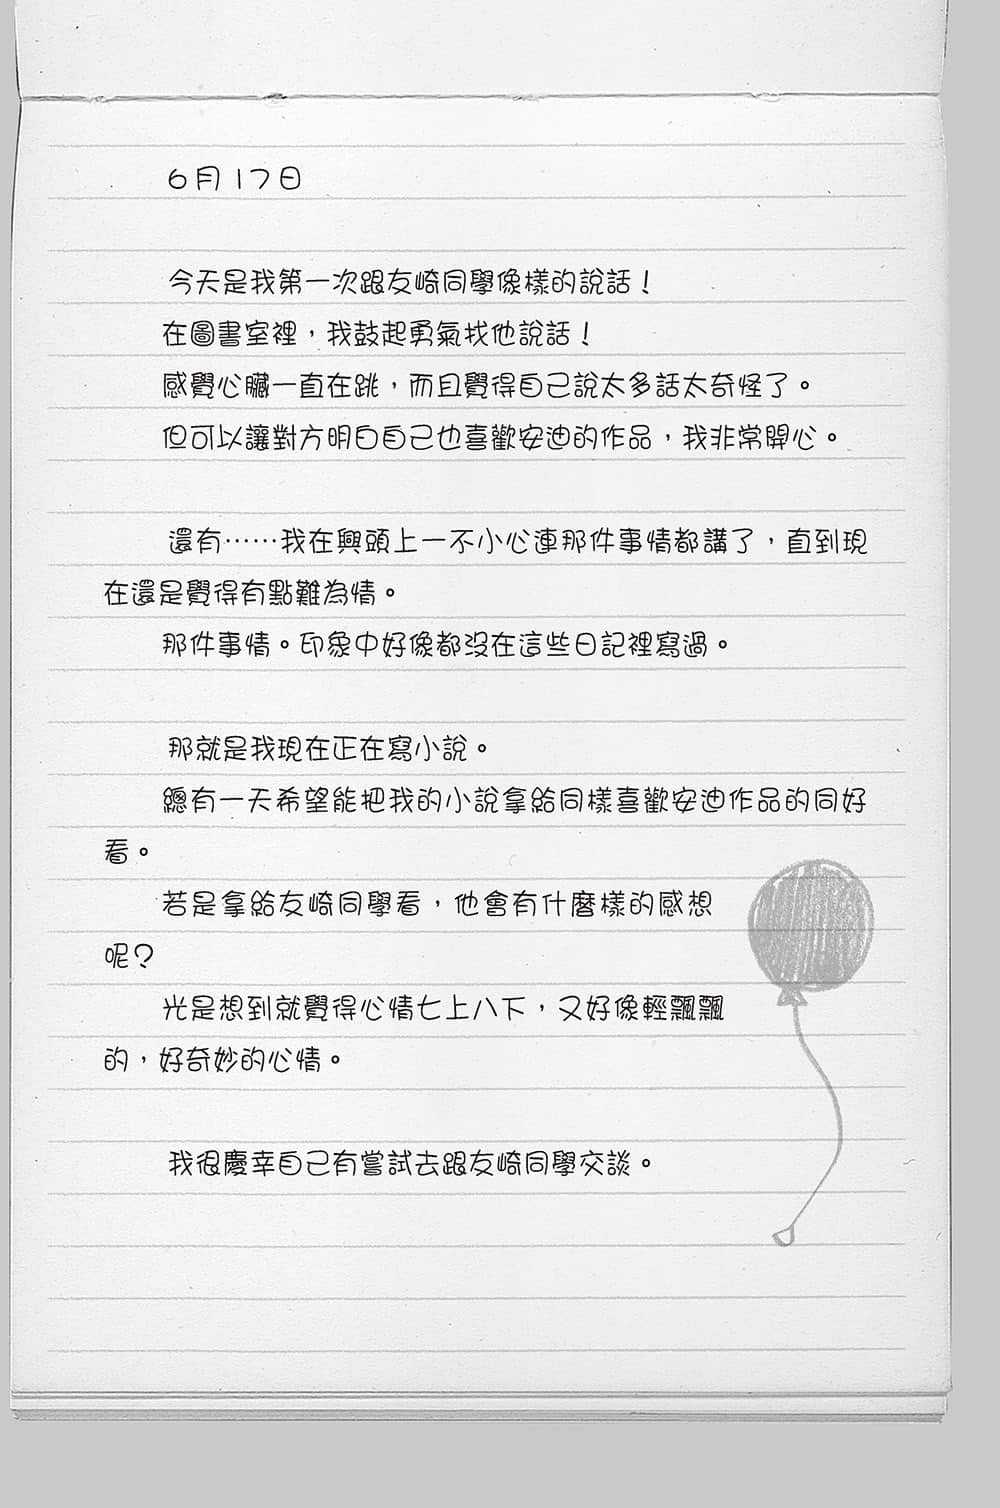 6月17日
今天是我第一次跟友崎同學像樣的說話！
在圖書室裡，我鼓起勇氣找他說話！
感覺心臟一直在跳，而且覺得自己說太多話太奇怪了。
但可以讓對方明白自己也喜歡安迪的作品，我非常開心。
還有……我在興頭上一不小心連那件事情都講了，直到現
在還是覺得有點難為情。
那件事情。印象中好像都沒在這些日記裡寫過。
那就是我現在正在寫小說。
總有一天希望能把我的小說拿給同樣喜歡安迪作品的同好
看。
若是拿給友崎同學看，他會有什麼樣的感想
呢？
光是想到就覺得心情七上八下，又好像輕飄飄
的，好奇妙的心情。
我很慶幸自己有嘗試去跟友崎同學交談。